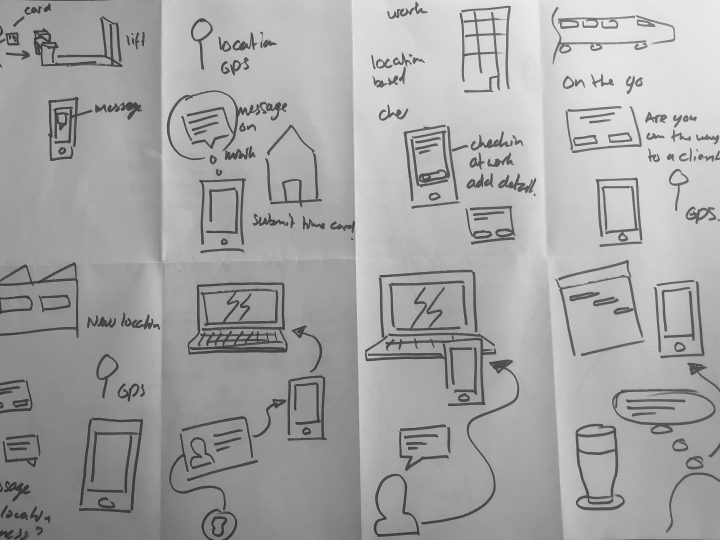 card
lift
message
location
GPS
message
on
work
Submit time card
work
location
based
che
checkin
at work
add detail.
on the go
Are you
on the way
to a client
GPS.
New location
GPS